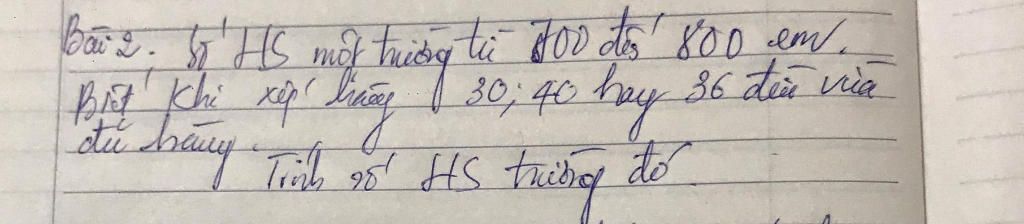 Bài 2. Số HS một trường từ 700 đến 800 em.
Biết khi xếp hàng 30; 40 hay 36 đều vừa
đủ hàng.
Tính số HS trường đó